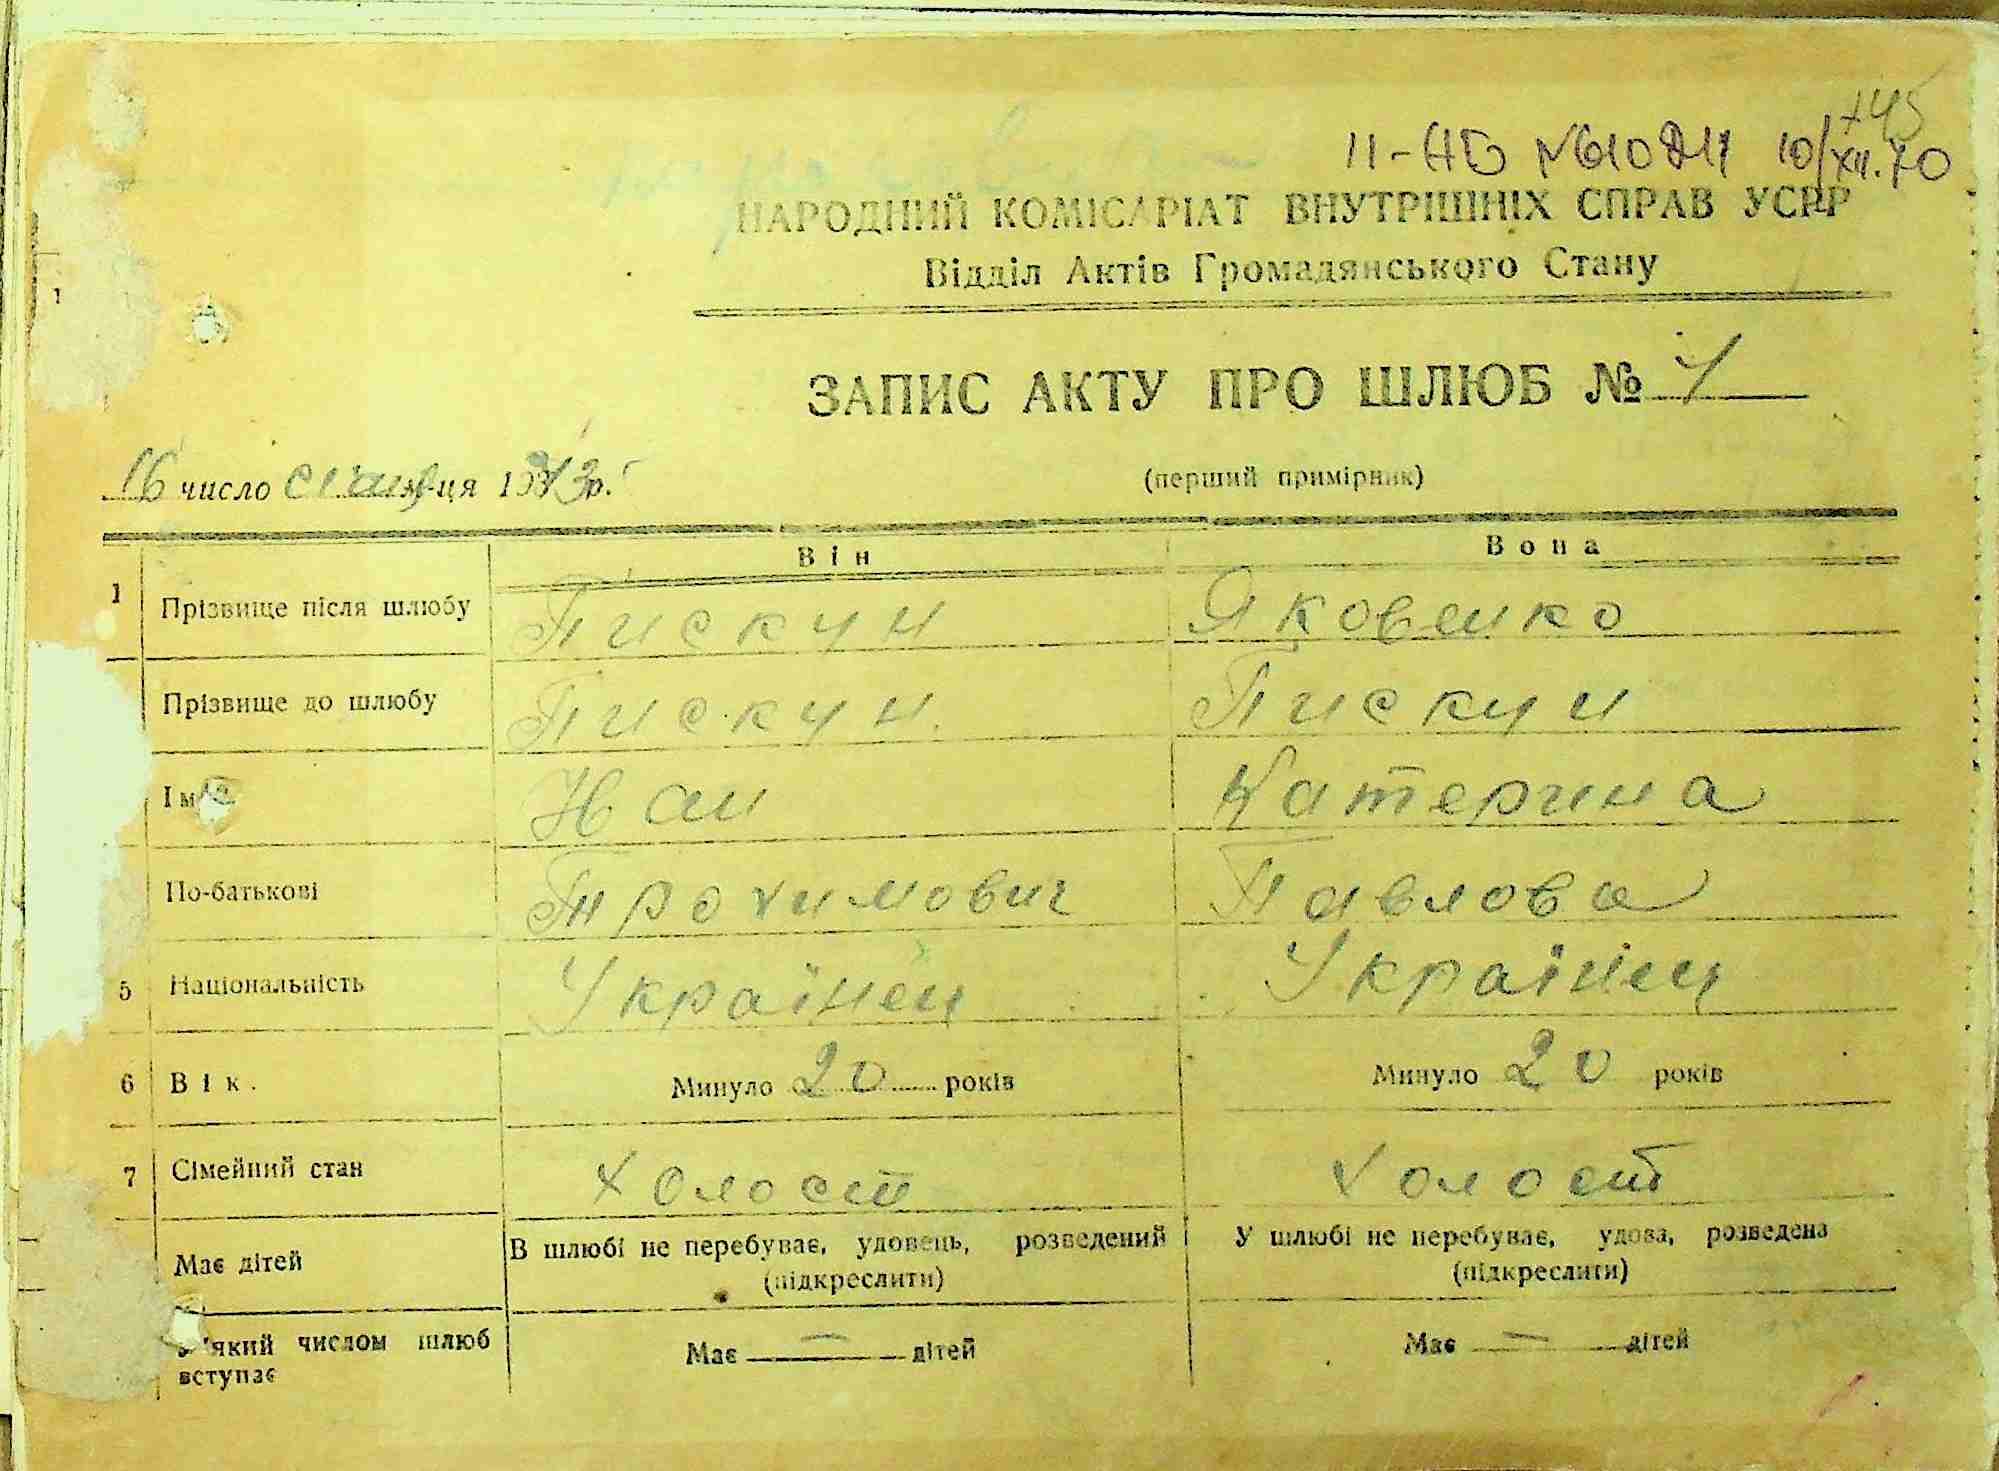 45
II-НБ № 610211 10/XII.70
НАРОДНИЙ КОМІСАРІАТ ВНУТРІШНІХ СПРАВ УСРР
Відділ Актів Громадянського Стану
ЗАПИС АКТУ ПРО ШЛЮБ №
16 число січня м-ця 1943р.
(перший примірник)
Він Вона
1 Прізвище після шлюбу Пискун Яковенко
Прізвище до шлюбу Пискун Пискун
Ім Катерина
По-батькові Трохимович Павлова
5 Національність Українец Українец
6 Вік. Минуло 20 років Минуло 20 років
7 Сімейний стан холост холост
Має дітей В шлюбі не перебуває, удовець, розведений У шлюбі не перебуває, удова, розведена
(підкреслити) (підкреслити)
який числом шлюб вступає Має — дітей Має — дітей